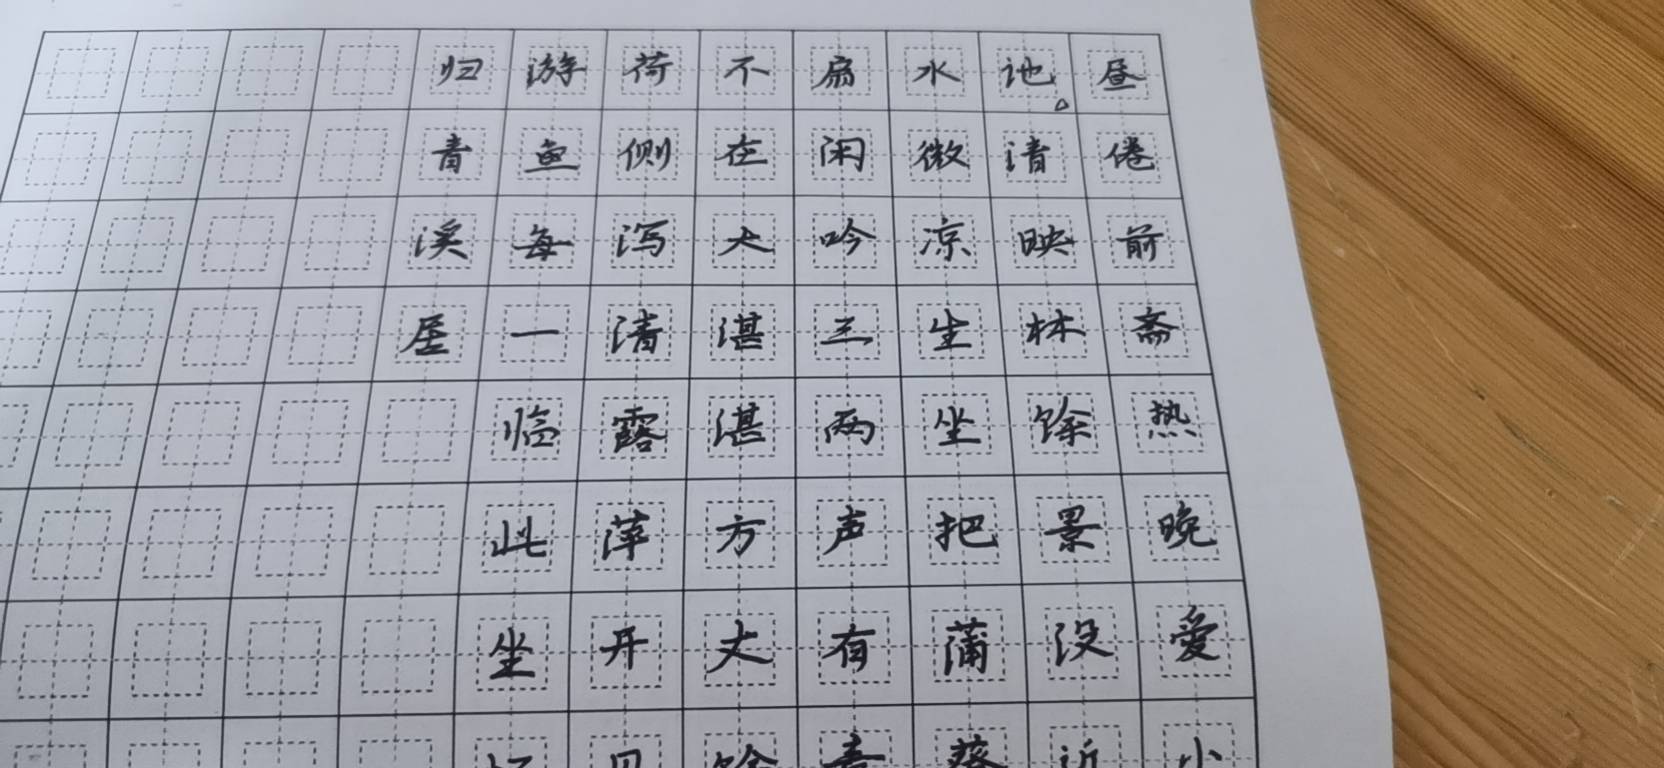 昼倦前斋热晚爱小
池。清映林馀景没近
水微凉生坐把蒲葵
扇闲吟三两声有意
不在大湛湛方丈馀
荷侧泻清露萍开见
游鱼每一临此坐忆
归青溪居